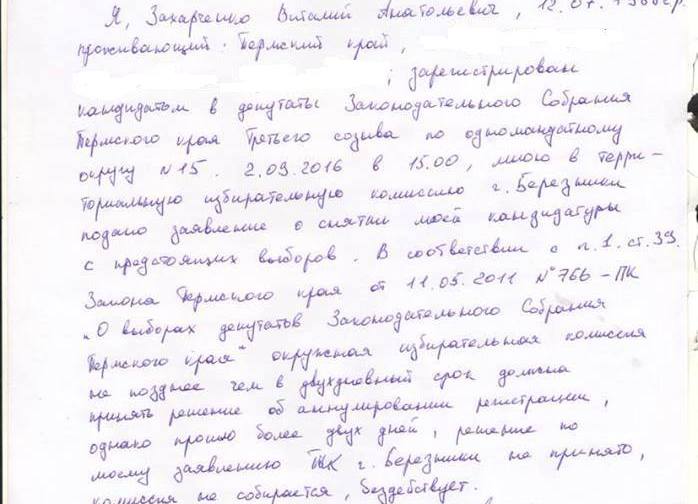 Я, Захарченко Виталий Анатольевич, 12.07.
проживающий: Пермский край,
; зарегистрирован
кандидатом в депутаты Законодательного Собрания
Пермского края Третьего созыва по одномандатному
округу N 15. 2.09.2016 в 15.00, мною в терри-
ториальную избирательную комиссию г. Березники
подано заявление о снятии моей кандидатуры
с предстоящих выборов. В соответствии с п.1.ст.39.
Закона Пермского края от 11.05.2011 N° 766-ПК
„О выборах депутатов Законодательного Собрания
Пермского края" окружная избирательная комиссия
не позднее чем в двухдневный срок должна
принять решение об аннулировании регистрации,
однако прошло более двух дней, решение по
моему заявлению ТИК г. Березники не принято,
комиссия не собирается, бездействует.